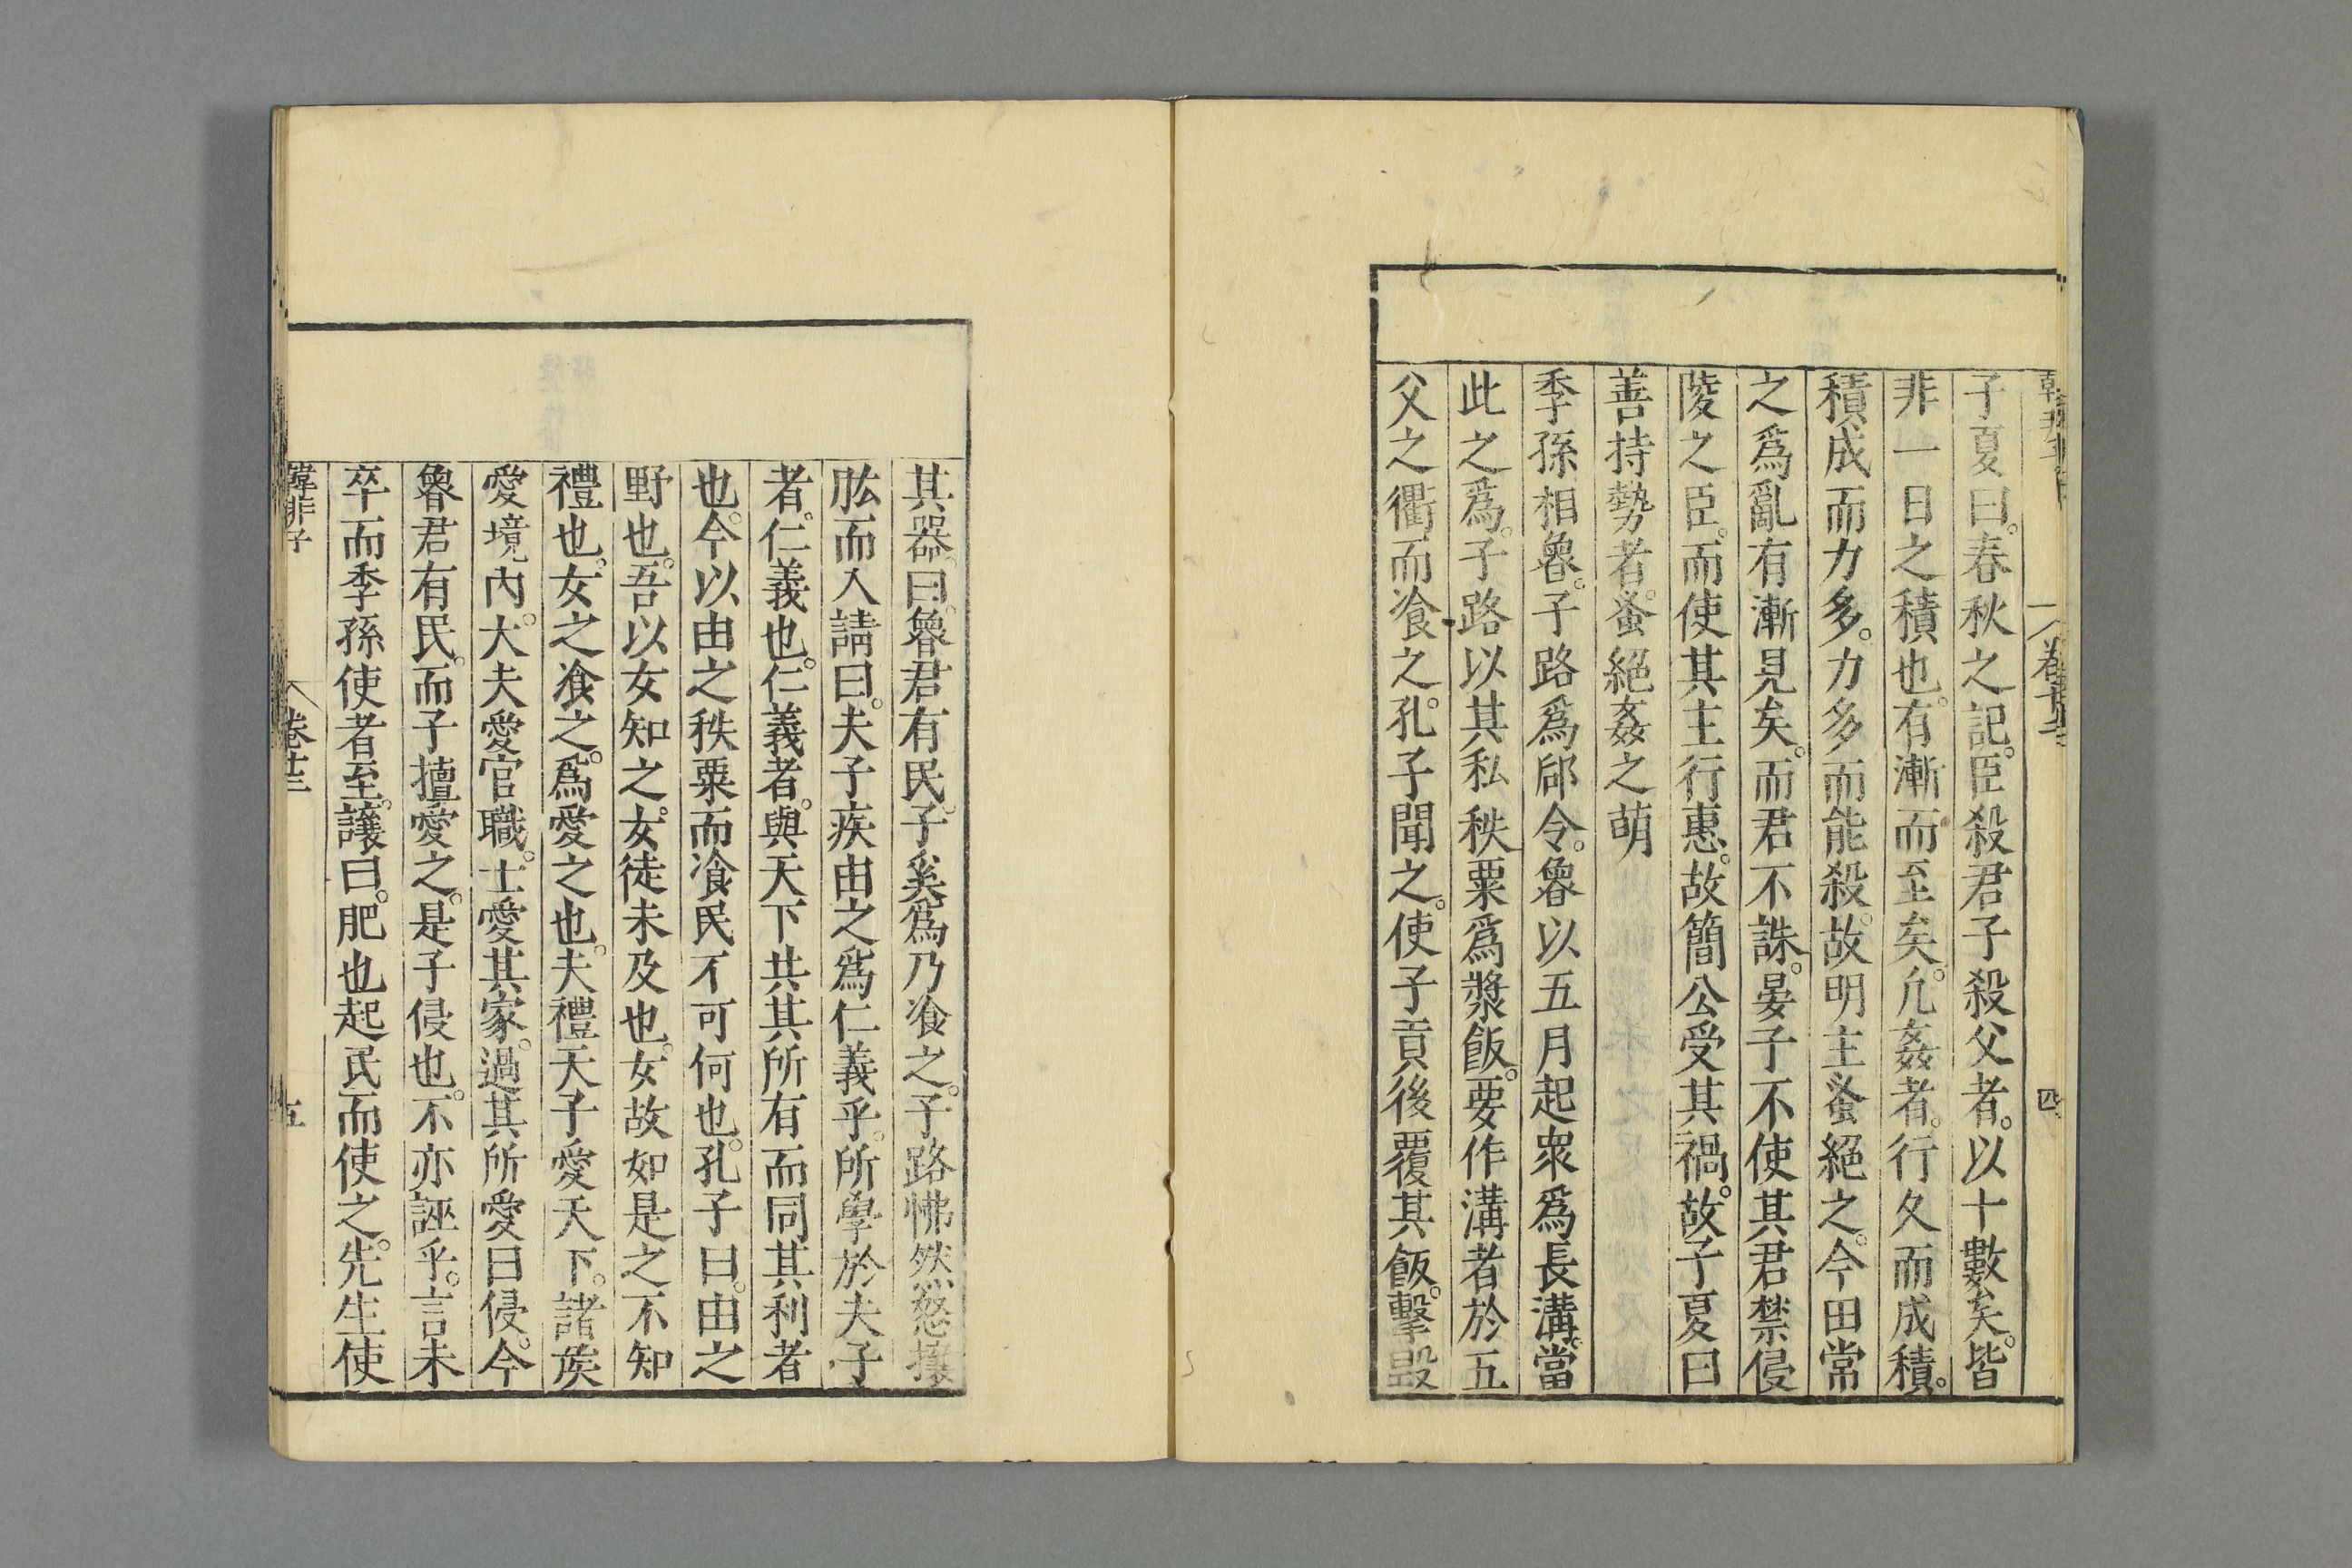 子夏曰。春秋之記。臣殺君子殺父者。以十數矣。皆
非一日之積也。有漸而至矣。凢姦者。行久而成積。
積成而力多。力多而能殺。故明主蚤絕之。今田常
之爲亂有漸見矣。而君不誅。晏子不使其君禁侵
陵之臣。而使其主行惠。故簡公受其禍。故子夏曰
善持勢者。蚤絕姦之萌
季孫相魯。子路爲郈令。魯以五月起衆爲長溝。當
此之爲。子路以其私秩粟爲漿飯。要作溝者於五
父之衢而飡之。孔子聞之。使子貢後覆其飯。擊毀
其器。曰。魯君有民。子奚爲乃飡之。子路怫然怒攘
肱而入請曰。夫子疾由之爲仁義乎。所學於夫子
者。仁義也。仁義者。與天下共其所有而同其利者
也。今以由之秩粟而飡民不可何也。孔子曰。由之
野也。吾以女知之。女徒未及也。女故如是之不知
禮也。女之飡之。爲愛之也。夫禮天子愛天下。諸侯
愛境內。大夫愛官職。士愛其家。過其所愛曰侵。今
魯君有民。而子擅愛之。是子侵也。不亦誣乎。言未
卒而季孫使者至。讓曰。肥也起民而使之。先生使
韓非子 卷十三 五